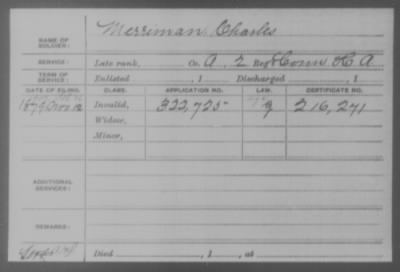 NAME OF SOLDIER: Merriman, Charles
SERVICE: Late rank, Co. A, 2 Reg't Conn H A
TERM OF SERVICE: Enlisted , 1 Discharged , 1
DATE OF FILING. CLASS. APPLICATION NO. LAW. CERTIFICATE NO.
1879 Nov 12 Invalid, 322,725 216,271
Widow,
Minor,
ADDITIONAL SERVICES:
REMARKS:
Died , 1 , at